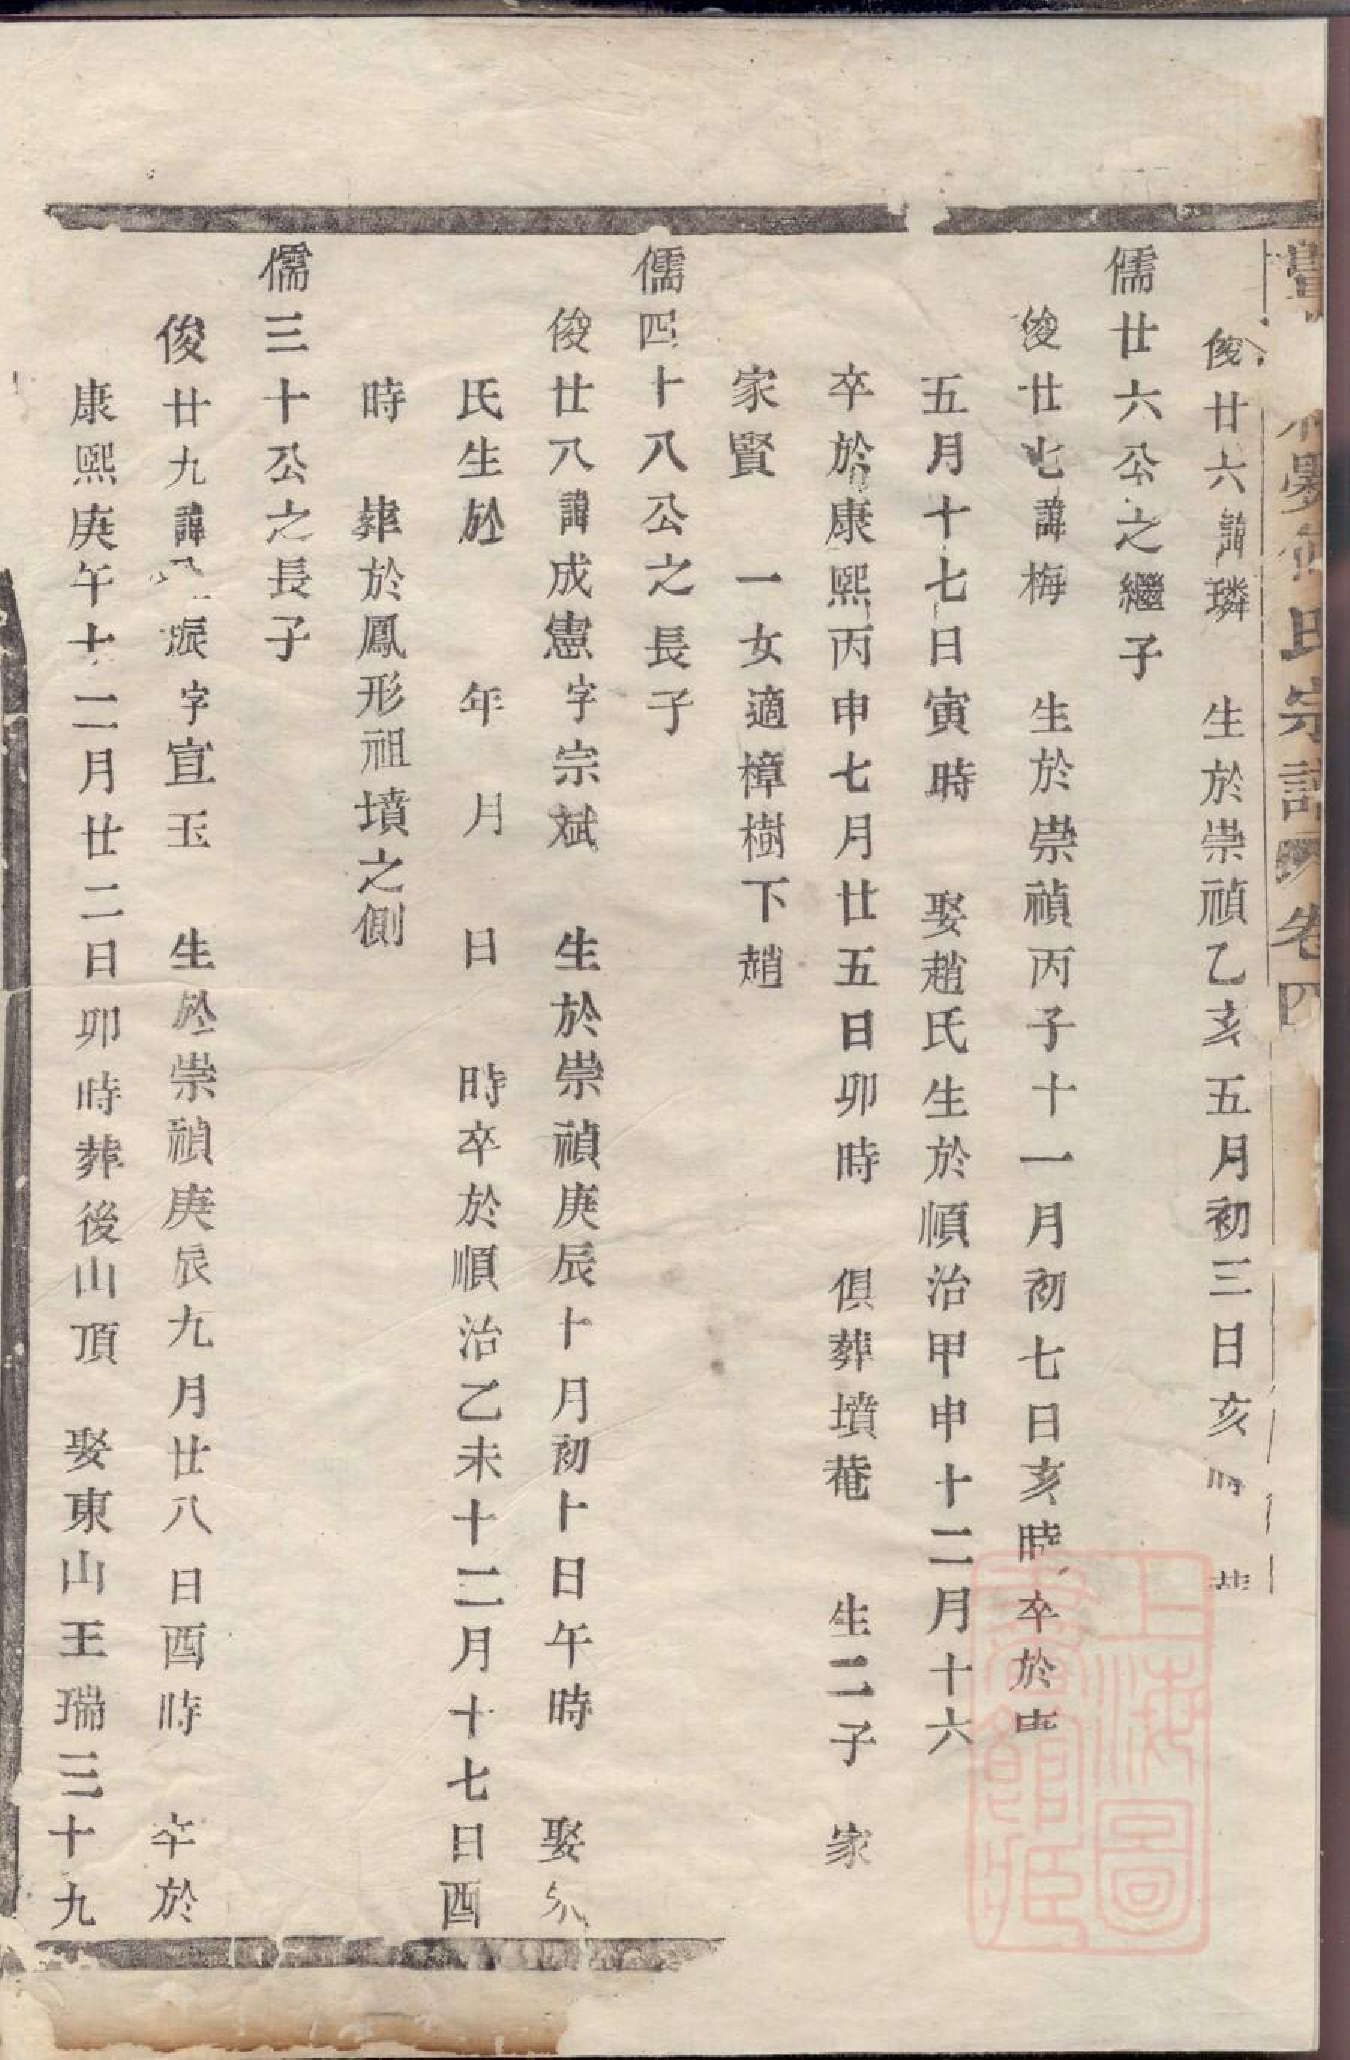 氏宗譜 卷四
俊廿六諱璘 生於崇禎乙亥五月初三日亥時
儒廿六公之繼子
俊廿七諱梅 生於崇禎丙子十一月初七日亥時卒於康
五月十七日寅時 娶趙氏生於順治甲申十二月十六
卒於康熙丙申七月廿五日卯時 俱葬墳菴 生二子 家
家賢 一女適樟樹下趙
儒四十八公之長子
俊廿八諱成憲字宗斌 生於崇禎庚辰十月初十日午時 娶
氏生於 年 月 日 時卒於順治乙未十二月十七日酉
時 葬於鳳形祖墳之側
儒三十公之長子
俊廿九諱 字宣玉 生於崇禎庚辰九月廿八日酉時 卒於
康熙庚午十二月廿二日卯時葬後山頂 娶東山王瑞三十九
上海圖書館藏